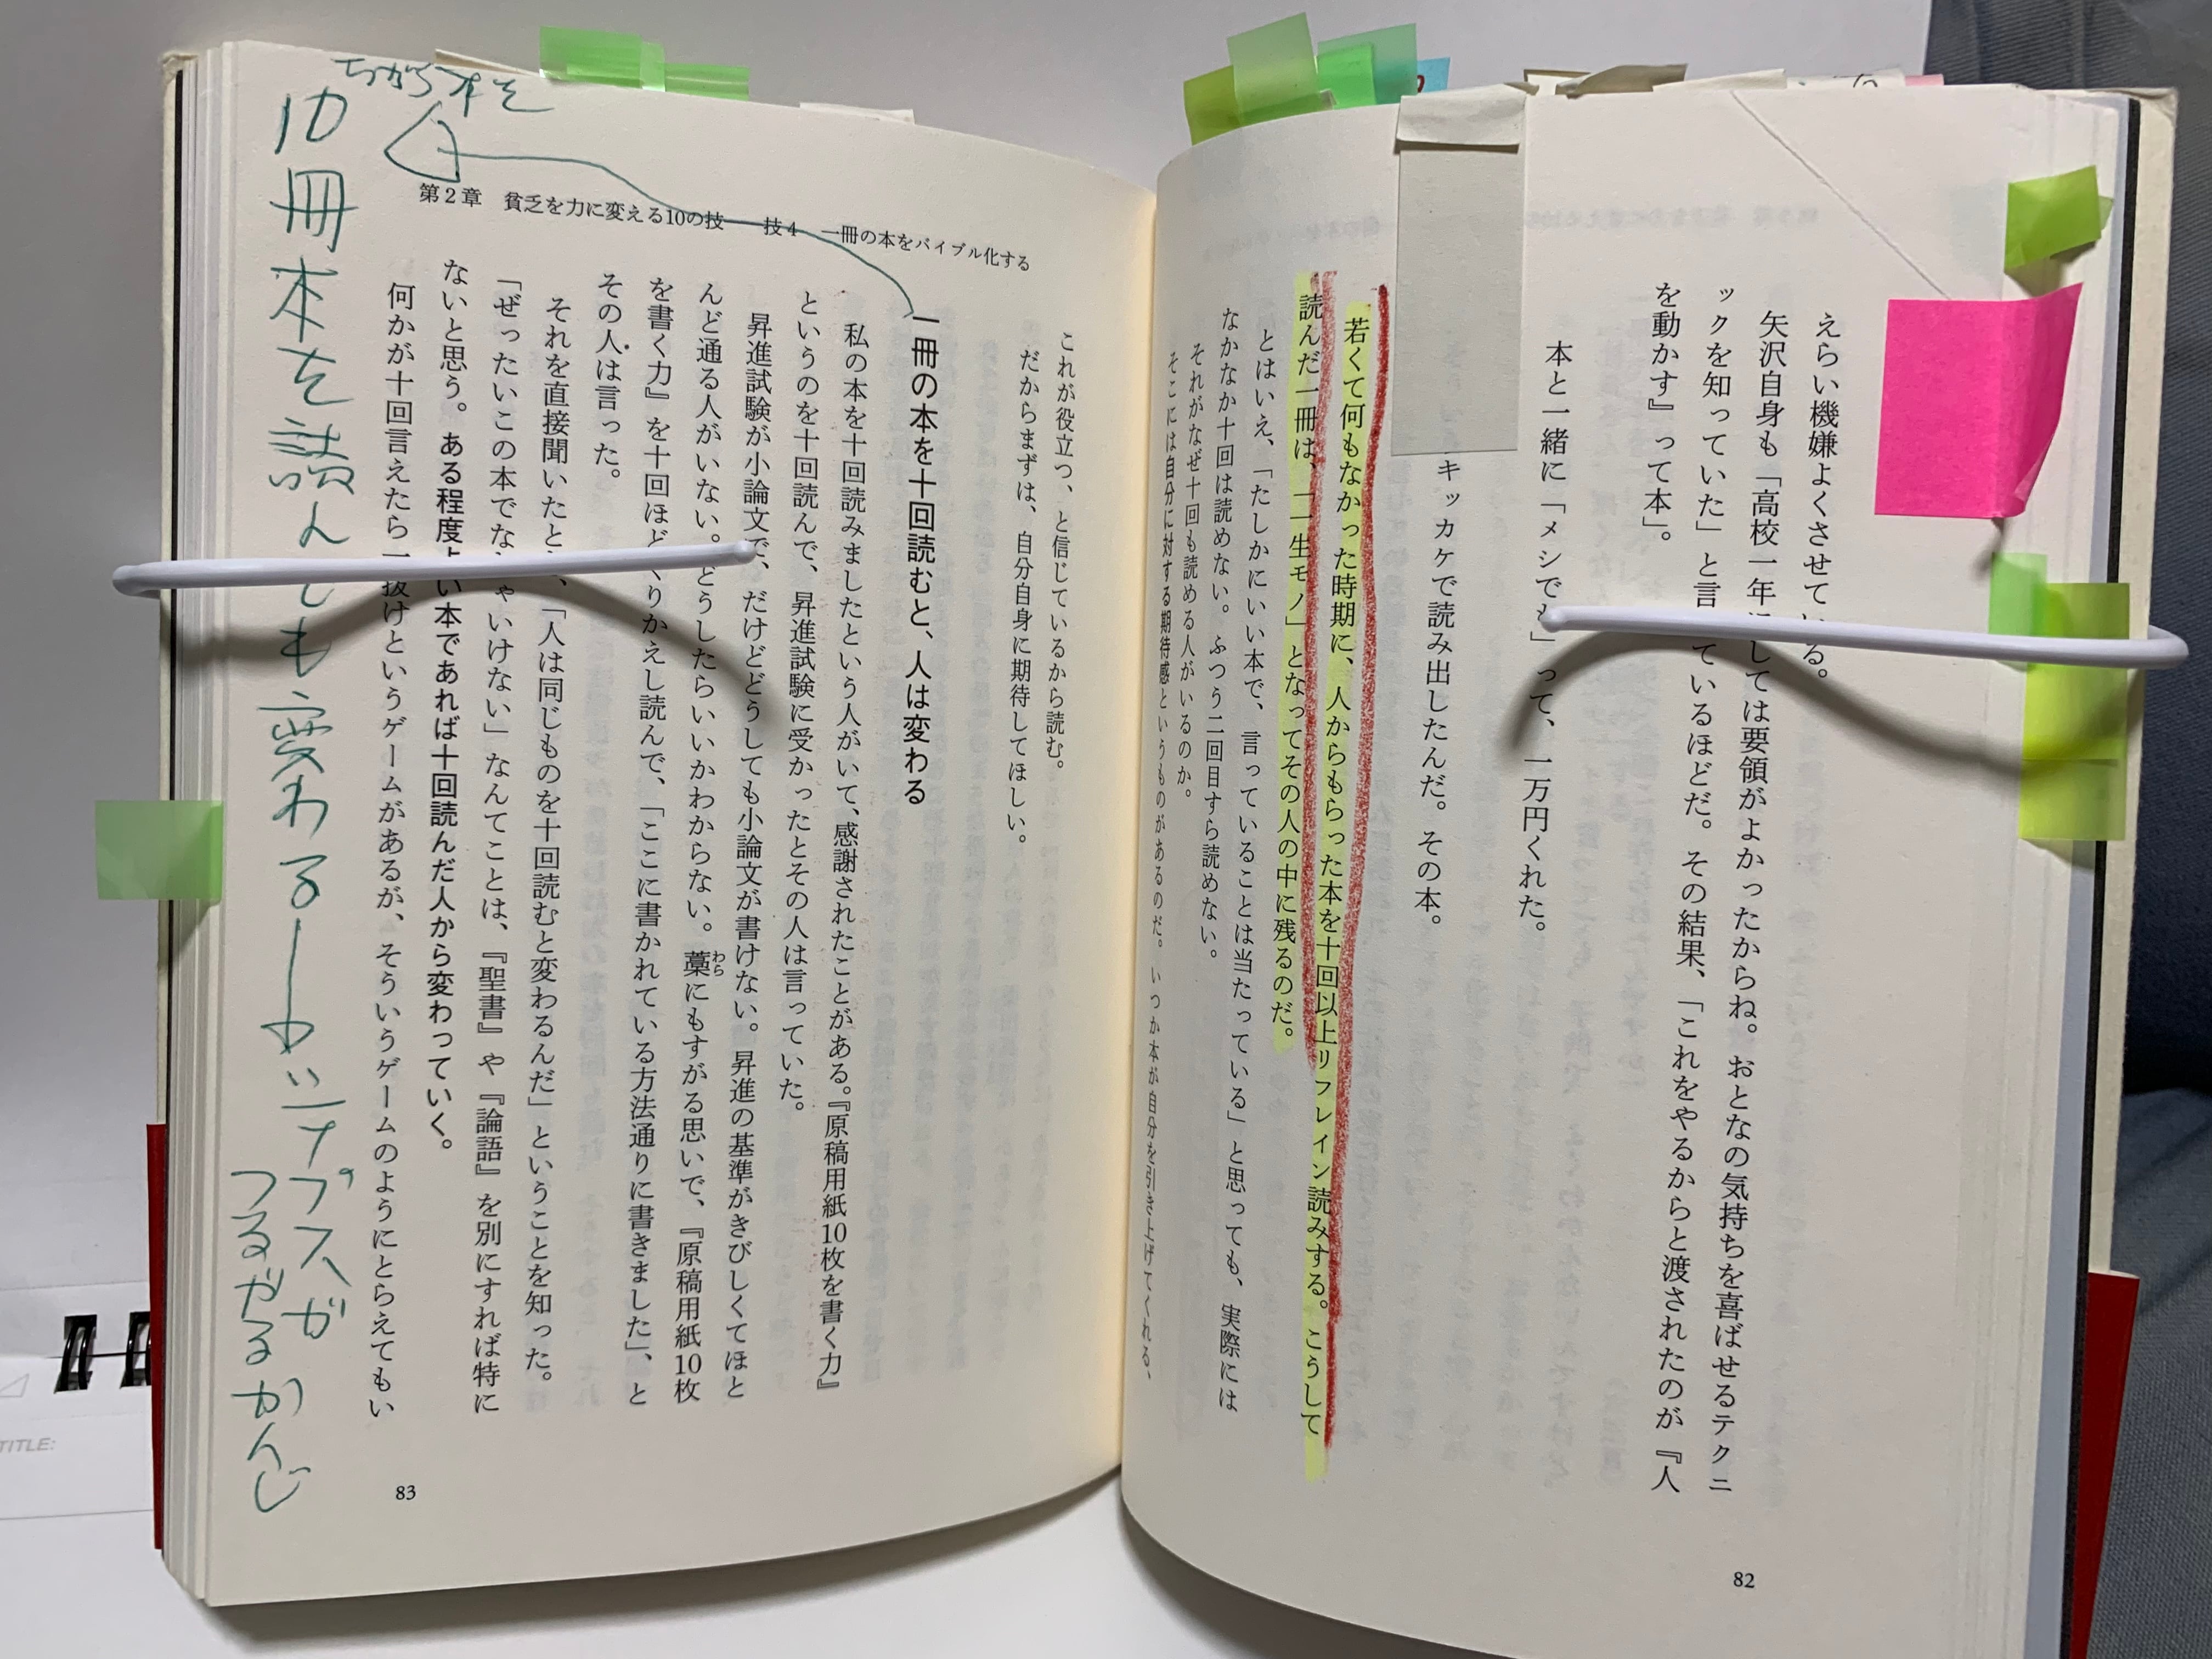 えらい機嫌よくさせている。
矢沢自身も「高校一年にしては要領がよかったからね。おとなの気持ちを喜ばせるテクニ
ックを知っていた」と言っているほどだ。その結果、「これをやるからと渡されたのが『人
を動かす』って本」。
本と一緒に「メシでも」って、一万円くれた。
キッカケで読み出したんだ。その本。
若くて何もなかった時期に、人からもらった本を十回以上リフレイン読みする。こうして
読んだ一冊は、「一生モノ」となってその人の中に残るのだ。
とはいえ、「たしかにいい本で、言っていることは当たっている」と思っても、実際には
なかなか十回は読めない。ふつう二回目すら読めない。
それがなぜ十回も読める人がいるのか。
そこには自分に対する期待感というものがあるのだ。いつか本が自分を引き上げてくれる、
82
第2章 貧乏を力に変える10の技――技4 一冊の本をバイブル化する
これが役立つ、と信じているから読む。
だからまずは、自分自身に期待してほしい。
一冊の本を十回読むと、人は変わる
私の本を十回読みましたという人がいて、感謝されたことがある。『原稿用紙10枚を書く力』
というのを十回読んで、昇進試験に受かったとその人は言っていた。
昇進試験が小論文で、だけどどうしても小論文が書けない。昇進の基準がきびしくてほと
んど通る人がいない。どうしたらいいかわからない。藁にもすがる思いで、『原稿用紙10枚
わら
を書く力』を十回ほどくりかえし読んで、「ここに書かれている方法通りに書きました」、と
その人は言った。
それを直接聞いたとき、「人は同じものを十回読むと変わるんだ」ということを知った。
「ぜったいこの本でなくちゃいけない」なんてことは、『聖書』や『論語』を別にすれば特に
ないと思う。ある程度よい本であれば十回読んだ人から変わっていく。
何かが十回言えたら一抜けというゲームがあるが、そういうゲームのようにとらえてもい
83
ちがう本を
10冊本を読んでも変わる―
シナプスが
つながるかんじ
TITLE: